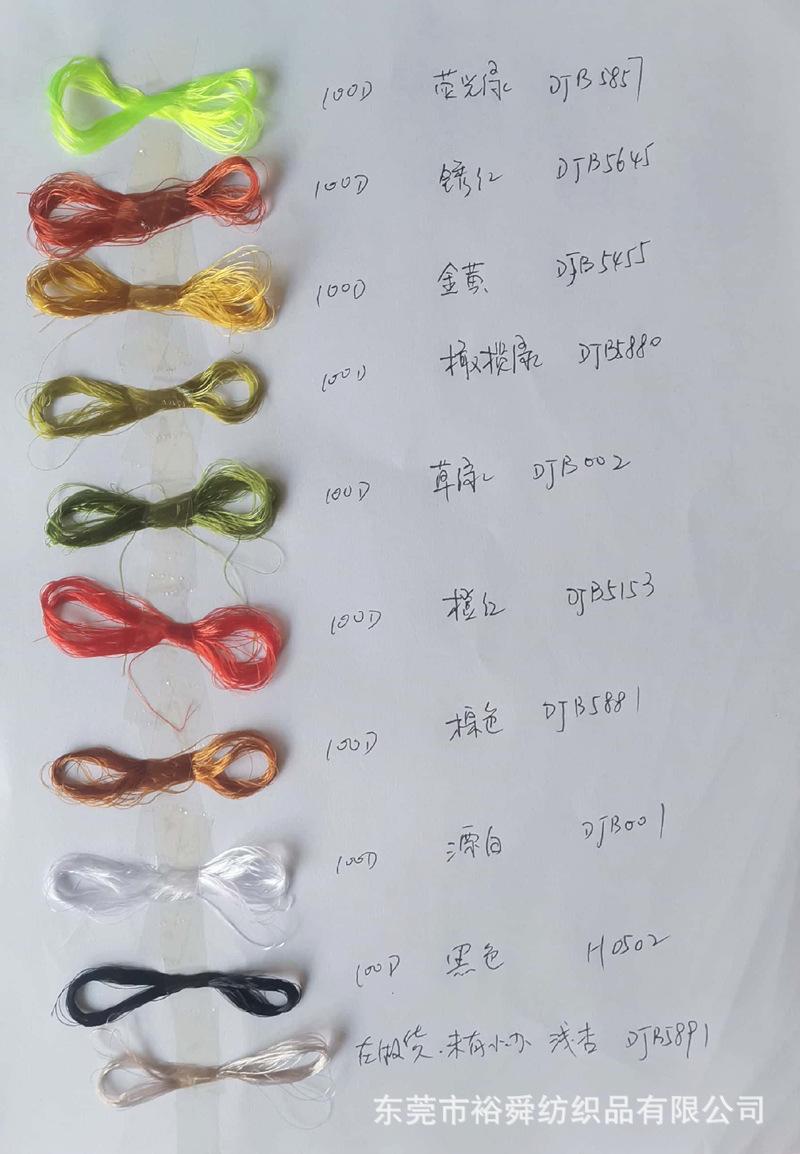 100D 荧光绿 DJB5857
100D 锈红 DJB5645
100D 金黄 DJB5455
100D 橄榄绿 DJB5880
100D 草绿 DJB002
100D 橙红 DJB5153
100D 棕色 DJB5881
100D 漂白 DJB001
100D 黑色 H0502
在做货.未存小办 浅杏 DJB5891
东莞市裕舜纺织品有限公司